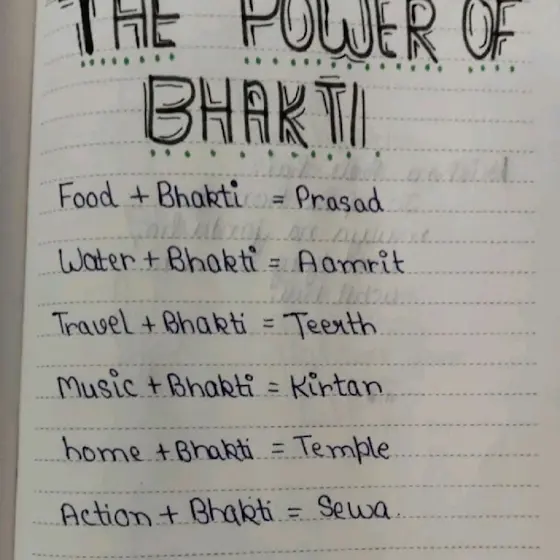 THE POWER OF
BHAKTI
Food + Bhakti = Prasad
Water + Bhakti = Aamrit
Travel + Bhakti = Teerth
Music + Bhakti = Kirtan
home + Bhakti = Temple
Action + Bhakti = Sewa.